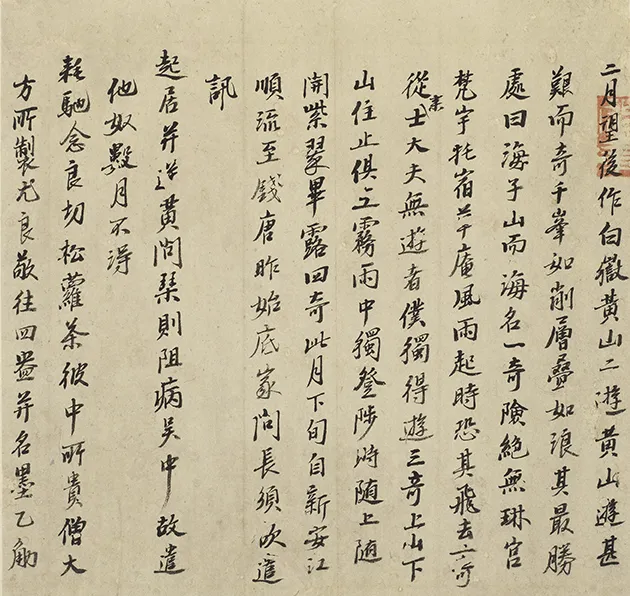 二月望後作白嶽黃山二遊黃山遊甚
艱而奇千峯如削層疊如浪其最勝
處曰海子山而海名一奇險絕無琳宮
梵宇托宿茅庵風雨起時恐其飛去二奇
從來士大夫無遊者僕獨得遊三奇上山下
山住止俱雲霧雨中獨登陟時隨上隨
開紫翠畢露四奇此月下旬自新安江
順流至錢唐昨始底家問長須欲遣
訊
起居并送黃問琹則阻病吳中故遣
他奴數月不得
耗馳念良切松蘿茶彼中所貴僧大
方所製尤良敬往四壺并名墨乙觔